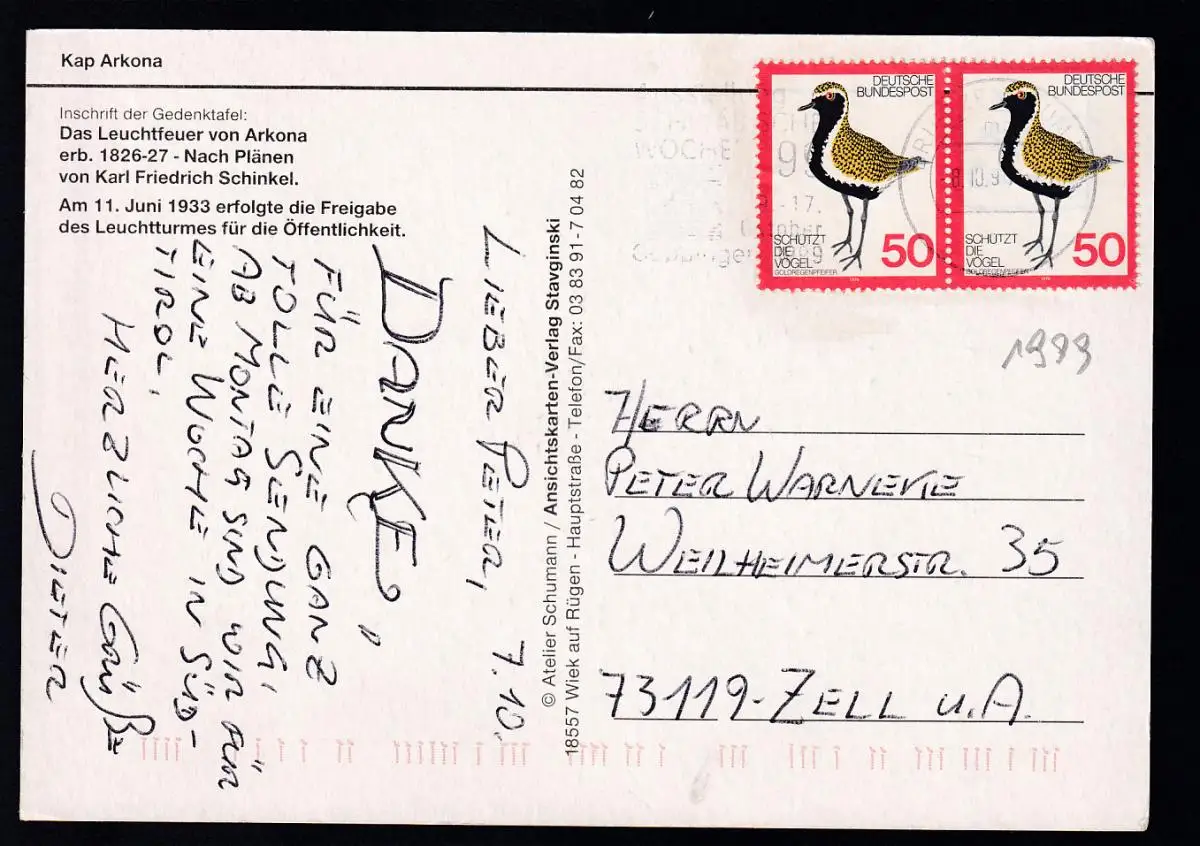 Kap Arkona
Inschrift der Gedenktafel:
Das Leuchtfeuer von Arkona
erb. 1826-27 - Nach Plänen
von Karl Friedrich Schinkel.
Am 11. Juni 1933 erfolgte die Freigabe
des Leuchtturmes für die Öffentlichkeit.
LIEBER PETER, 7.10.
DANKE
FÜR EINE GANZ
TOLLE SENDUNG,
AB MONTAG SIND WIR FÜR
EINE WOCHE IN SÜD-
TIROL,
HERZLICHE GRÜßE
DIETER
© Atelier Schumann / Ansichtskarten-Verlag Stavginski
18557 Wiek auf Rügen - Hauptstraße - Telefon/Fax: 03 83 91-7 04 82
DEUTSCHE
BUNDESPOST
SCHÜTZT
DIE
VÖGEL
GOLDREGENPFEIFER
50
DEUTSCHE
BUNDESPOST
SCHÜTZT
DIE
VÖGEL
GOLDREGENPFEIFER
50
WOCHE
- 17.
Oktober
8.10.9
1999
HERRN
PETER WARNEKE
WEILHEIMERSTR. 35
73119-ZELL u.A.